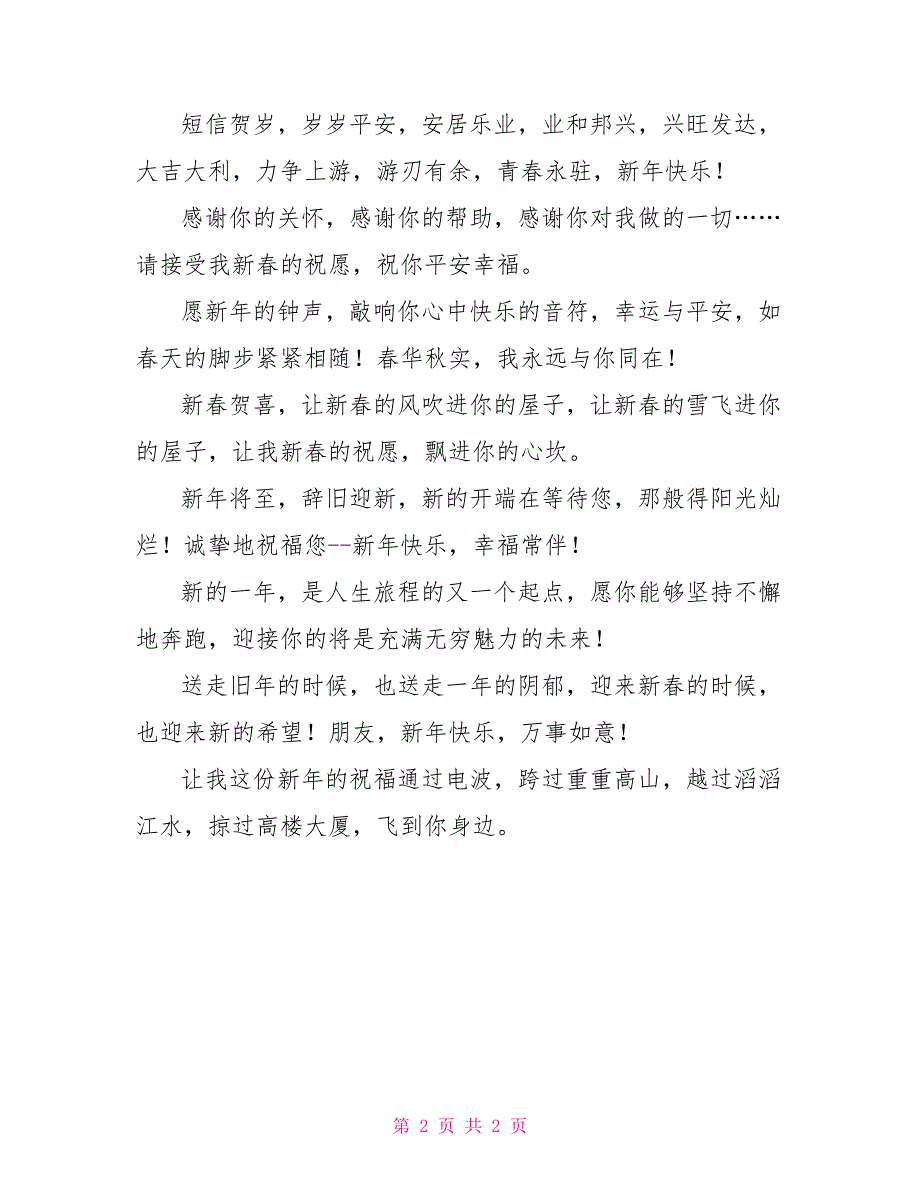 短信贺岁，岁岁平安，安居乐业，业和邦兴，兴旺发达，
大吉大利，力争上游，游刃有余，青春永驻，新年快乐！
感谢你的关怀，感谢你的帮助，感谢你对我做的一切……
请接受我新春的祝愿，祝你平安幸福。
愿新年的钟声，敲响你心中快乐的音符，幸运与平安，如
春天的脚步紧紧相随！春华秋实，我永远与你同在！
新春贺喜，让新春的风吹进你的屋子，让新春的雪飞进你
的屋子，让我新春的祝愿，飘进你的心坎。
新年将至，辞旧迎新，新的开端在等待您，那般得阳光灿
烂！诚挚地祝福您--新年快乐，幸福常伴！
新的一年，是人生旅程的又一个起点，愿你能够坚持不懈
地奔跑，迎接你的将是充满无穷魅力的未来！
送走旧年的时候，也送走一年的阴郁，迎来新春的时候，
也迎来新的希望！朋友，新年快乐，万事如意！
让我这份新年的祝福通过电波，跨过重重高山，越过滔滔
江水，掠过高楼大厦，飞到你身边。
第 2 页 共 2 页